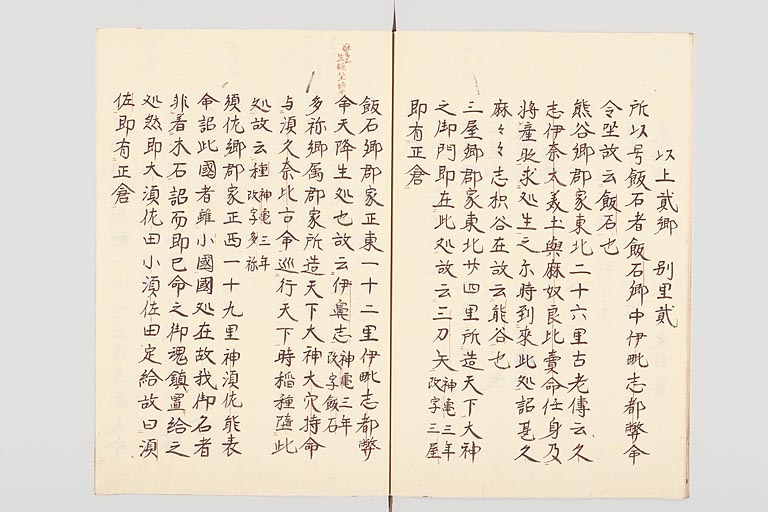 以上貳郷　別里貳
所以号飯石者飯石郷中伊毗志都弊命
令坐故云飯石也
熊谷郷郡家東北二十六里古老傳云久
志伊奈大美等與麻奴良比賣命任身及
将産時求処生之尓時到來此処詔甚久
麻々々志枳谷在故云熊谷也
三屋郷郡家東北廿四里所造天下大神
之御門即在此処故云三刀矢神亀三年改字三屋
即有正倉
飯石郷郡家正東一十二里伊毗志都弊
命天降生処也故云伊鼻志神亀三年改字飯石
多祢郷属郡家所造天下大神大穴持命
与須久奈比古命巡行天下時稲種墮此
処故云種神亀三年改字多祢
須佐郷郡家正西一十九里神須佐能袁
命詔此國者雖小國國処在故我御名者
非着木石詔而即己命之御魂鎮置給之
処然即大須佐田小須佐田定給故曰須
佐即有正倉